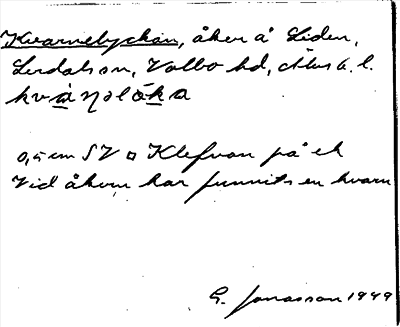 Kvarnelyckan, åker å Liden,
Lerdalson, Valbo hd, Älvs b. l.
kvàṇəlø̀ka
0,5 cm SV □ Klefvan på ek
Vid åkern har funnits en kvarn
G. Jonasson 1949